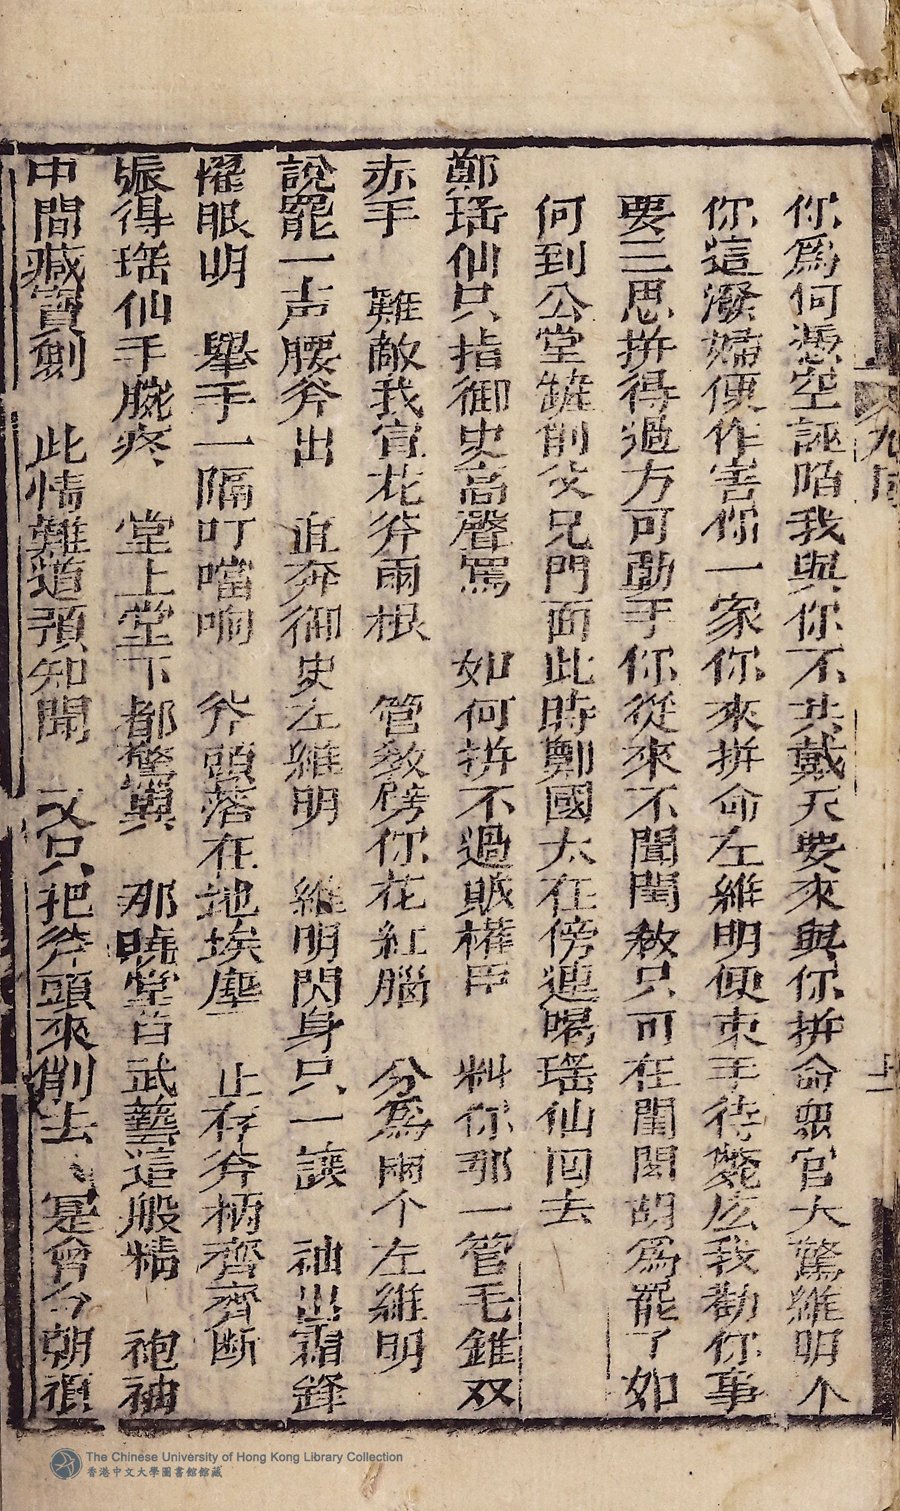 你為何憑空誣陷我與你不共戴天要來與你拚命衆官大驚維明个
你這潑婦便作害你一家你來拚命左維明便束手待斃庅我勸你事
要三思拚得過方可動手你從來不聞閨教只可在閨閫胡為罷了如
何到公堂雖削父兄門面此時鄭國太在傍連喝瑤仙囘去
鄭瑤仙只指御史高聲罵 如何拚不過賊權臣 料你那一管毛錐双
赤手 難敵我宣花斧兩根 管敎劈你花紅腦 分爲兩个左維明
說罷一声腰斧出 直奔御史左維明 維明閃身只一讓 袖出霜鋒
懼眼明 舉手一隔叮噹响 斧頭落在地埃塵 止存斧柄齊齊断
振得瑤仙手腕疼 堂上堂下都驚異 那曉堂首武藝這般精 袍袖
中間藏寶劍 此情難道預知聞 又只把斧頭來削去 是會今朝
九
The Chinese University of Hong Kong Library Collection
香港中文大學圖書館館藏